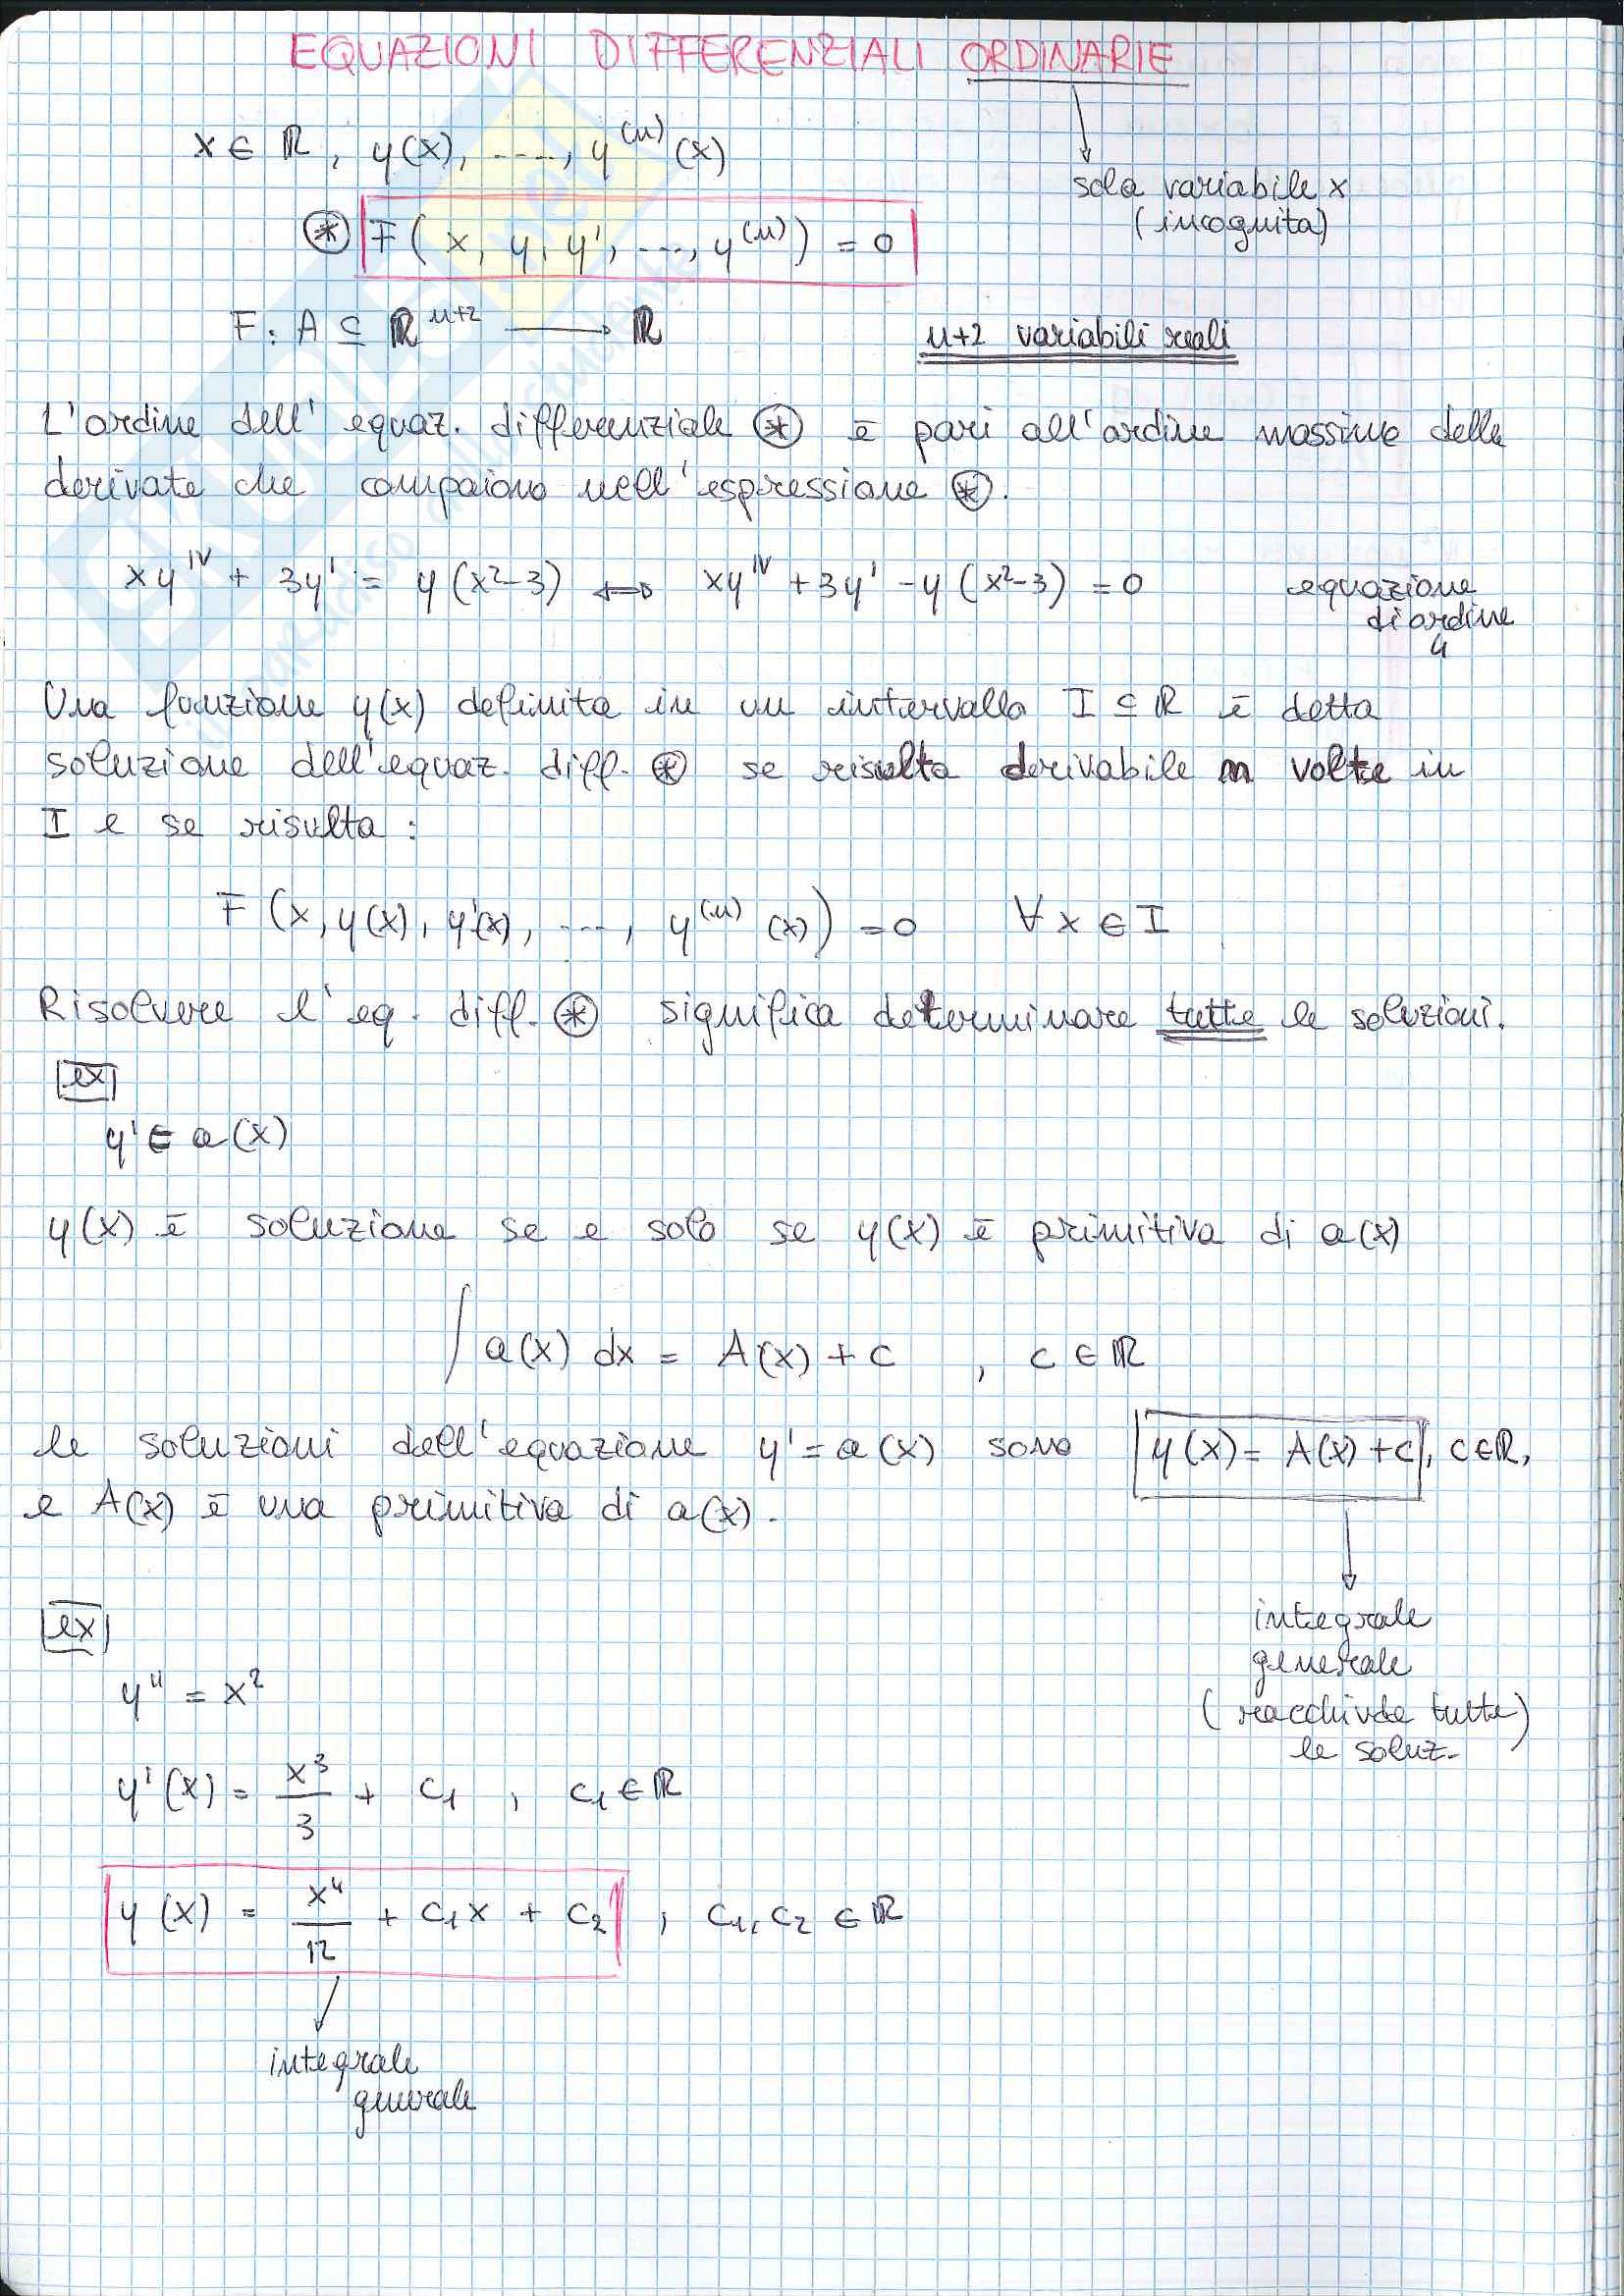 EQUAZIONI DIFFERENZIALI ORDINARIE
x ∈ ℝ, y(x), ...., y^(n) (x)
sola variabile x
(incognita)
⊛ F( x, y, y', ..., y^(n)) = 0
F: A ⊆ ℝ^n+2 → ℝ
n+2 variabili reali
L'ordine dell'equaz. differenziale ⊛ è pari all'ordine massimo delle
derivate che compaiono nell'espressione ⊛.
xy^IV + 3y' = y(x²-3) ⟷ xy^IV + 3y' - y(x²-3) = 0
equazione
di ordine
4
Una funzione y(x) definita in un intervallo I ⊆ ℝ è detta
soluzione dell'equaz. diff. ⊛ se risulta derivabile n volte in
I e se risulta:
F(x, y(x), y'(x), ..., y^(n) (x)) = 0 ∀ x ∈ I
Risolvere l'eq. diff. ⊛ significa determinare tutte le soluzioni.
ex
y' = a(x)
y(x) è soluzione se e solo se y(x) è primitiva di a(x)
∫ a(x) dx = A(x) + c , c ∈ ℝ
le soluzioni dell'equazione y' = a(x) sono y(x) = A(x) + c, c ∈ ℝ,
e A(x) è una primitiva di a(x).
integrale
generale
(racchiude tutte)
le soluz.
ex
y'' = x²
y'(x) = x³/3 + c₁ , c₁ ∈ ℝ
y(x) = x⁴/12 + c₁x + c₂ , c₁, c₂ ∈ ℝ
integrale
generale